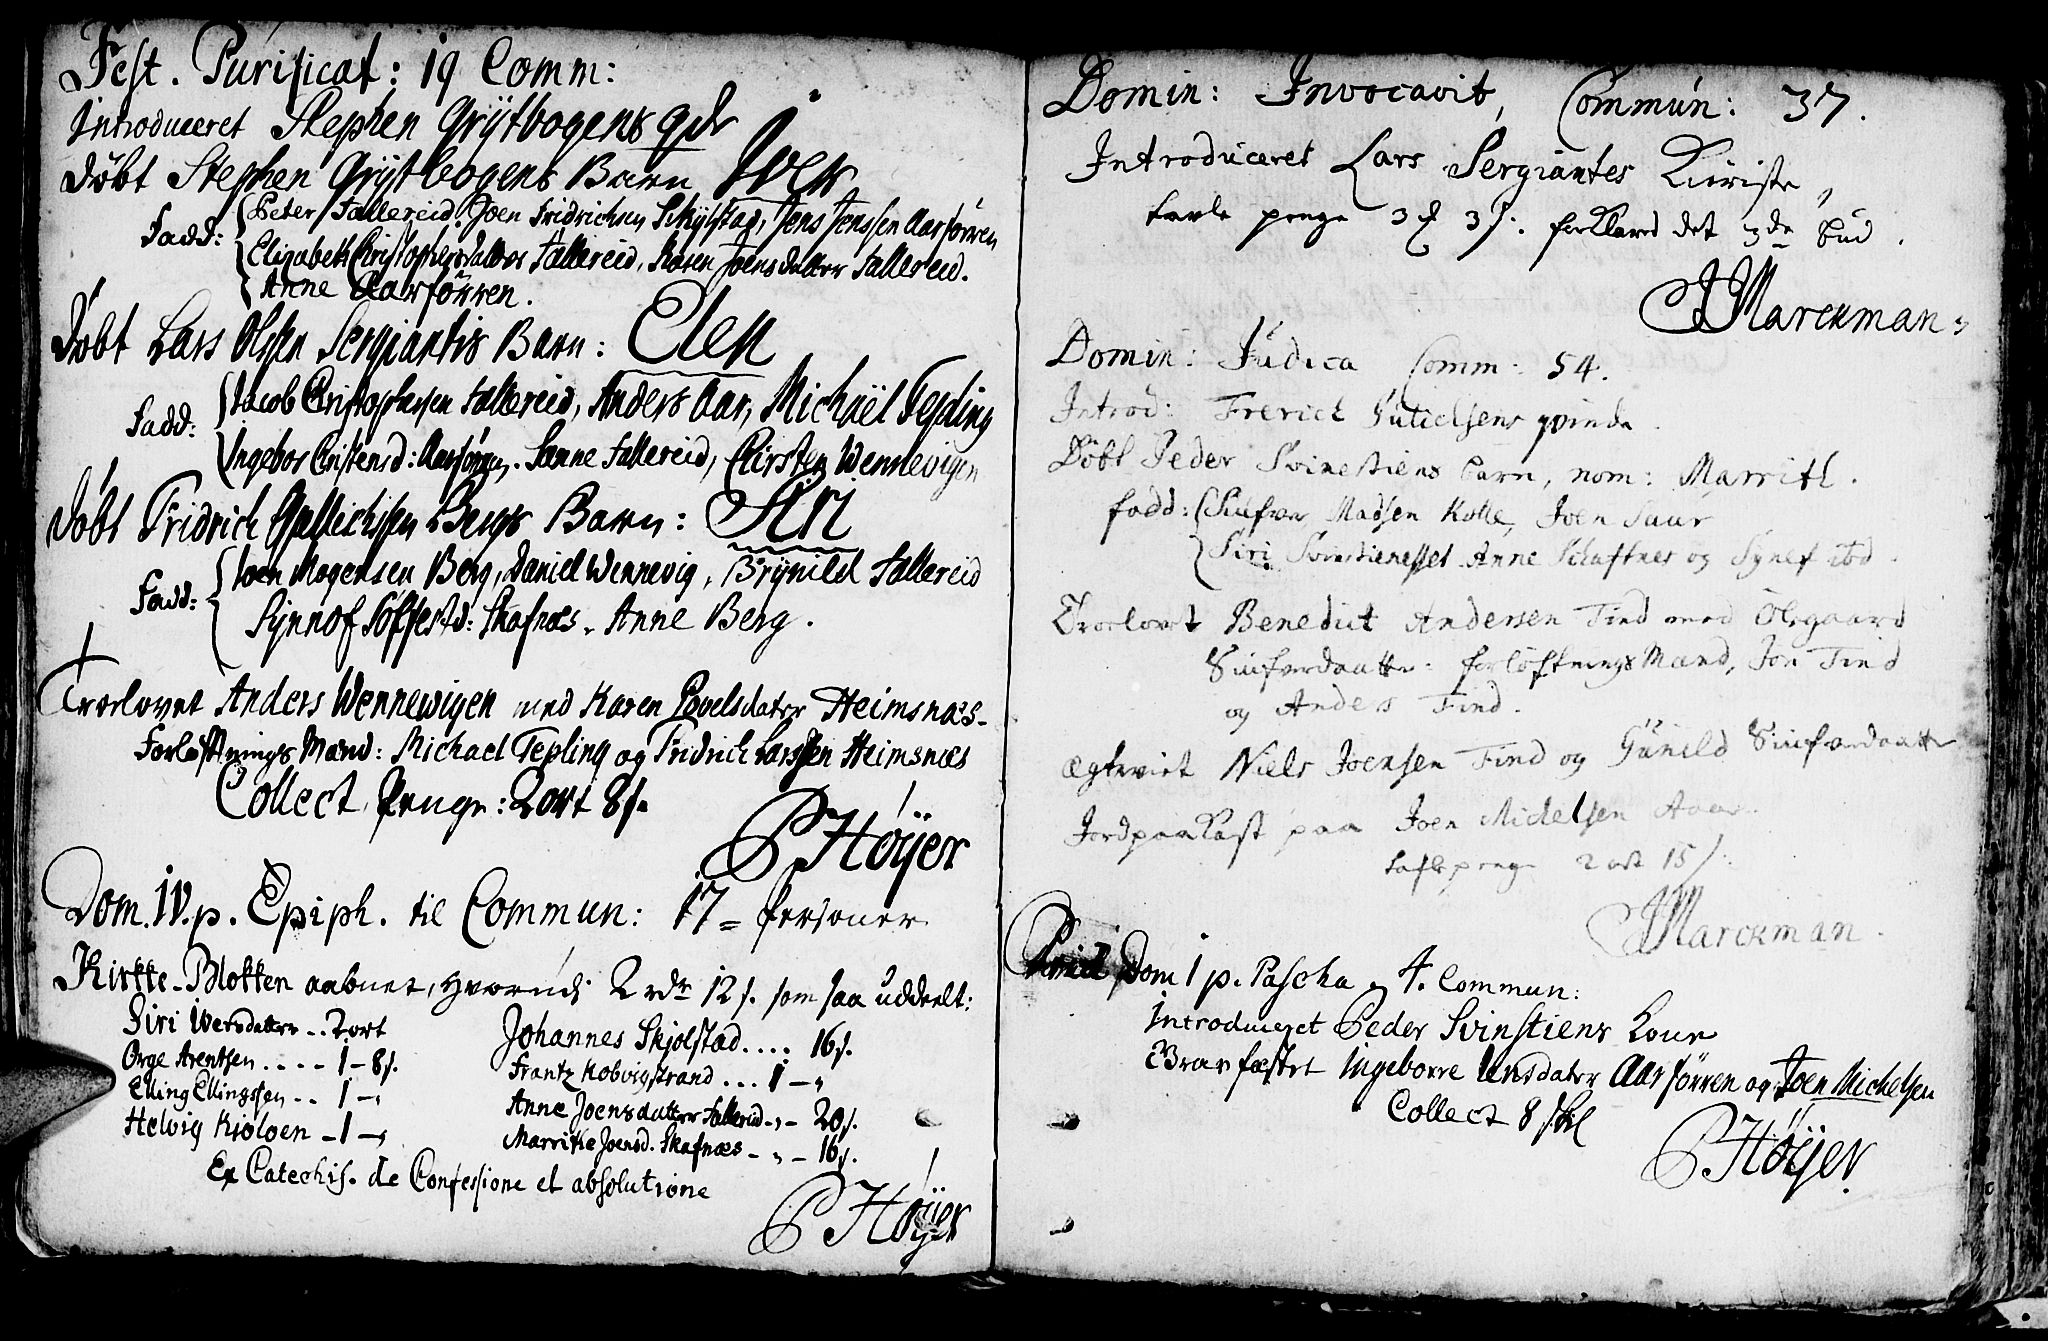 Fest. Purificat: 19 Comm:
Introduceret Stephen Grÿtbogens qde
Døbt Stephen Grÿtbogens Barn Iver
Fadd: Peter Fallereid, Joen Fridrichsen Skÿlstad, Jens Jenssen Aarsørren
Elizabeth Christophersdatter Fallereid, Karen Joensdatter Fallereid.
Anne Aarsørren.
Døbt Lars Olssen Sergiantis Barn: Elen
Fadd: Jacob Christophersen Fallereid, Anders Aar, Michaël Tepling
Ingebor Christensd: Aarsørren. Sanne Fallereid, Chirsten Wennevigen
Døbt Fridrich Bergs Barn: Siri
Fadd: Joen Mogensen Berg, Daniel Wennevig, Brÿnild Fallereid
Sÿnnof Skafnæs. Anne Berg.
Troelovet Anders Wennewigen med Karen Povelsdater Heimsnæs-
Forløftnings Mænd: Michael Tepling og Fridrich Larssen Heimsnæs
Collect Penge: 2 ort 8 s.
P Høÿer
Dom. IV. p. Epiph. til Commun: 17 = Personer
Kirkke-Blokken aabnet, hvorudi 2 rdr 12 s. som saa uddeelt:
Siri Iversdatter .. 2 ort
Orge Arentsen .... 1 - 8 s.
Elling Ellingssen .. 1 -
Helvig Kioløen - 1 -
Johannes Skjolstad .... 16 s.
Frantz Kobvigstrand ... 1 - "
Anne Joensdatter Fallereid - " - 20 s.
Marrithe Joensd. Skafnæs - " - 16 s.
Ex Catechis. de Confessione et absolutione
P Høÿer
Domin: Invocavit, Commún: 37.
Introduceret Lars Sergiantes
tavle penge 3 s. forklared det 3de bud.
J Marckman
Domin: Júdica Comm: 54.
Introd: Frerick qvinde.
Døbt Peder Svinestiens barn, nom: Marrith.
fadd: Siufver Madsen Kolle, Joen Saur
Siri Anne Schaftnes og Synef ibd.
Troelovet Benedict Andersen Find med Olegaard
Siufverdaatter. forløftnings Mænd, Jon Find
og Anders Find.
ægteviet Niels Joensen Find og Gúnild Siufverdaatter
Jordpaakast paa Joen Michelsen Aaar.
tafle penge 2 ort 15 s.
J Marckman.
Dom 1 p. Pascha 4. Commun:
Introduceret Peder Svinstiens Kone
Gravfæstet Ingeborre Aarsørren og Joen Michelsen
Collect 8 skl
P Høÿer.